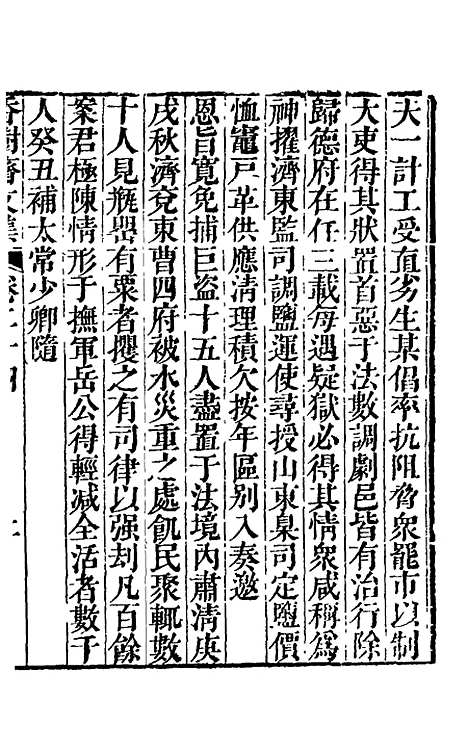 夫一計工受直劣生某倡率抗阻脅衆罷市以制
大吏得其狀置首惡于法數調劇邑皆有治行除
歸德府在任三載每遇疑獄必得其情衆咸稱為
神擢濟東監司調鹽運使尋授山東臬司定鹽價
恤竈戸革供應清理積欠按年區别入奏邀
恩旨寬免捕巨盗十五人盡置于法境内肅清庚
戌秋濟兗東曹四府被水災重之處飢民聚輒數
十人見瓶罌有粟者攫之有司律以强刦凡百餘
案君極陳情形于撫軍岳公得輕減全活者數千
人癸丑補太常少卿隨
香樹齋文集 卷二十四